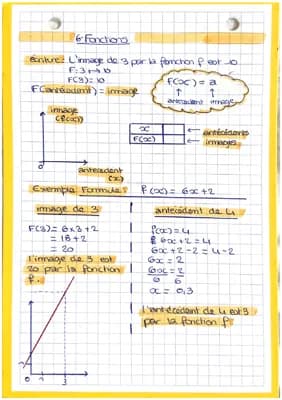 6-Fonctions
écriture: L'image de 3 par la fonction f est 10
F: 3 ↦ 10
F(3) = 10
F(antécédent) = image
F(x) = a
↑ ↑
antécédent image
image
(f(x))
antécédent
(x)
x ← antécédents
F(x) ← images
Exemple Formule: f(x) = 6x+2
image de 3
F(3) = 6×3+2
= 18+2
= 20
l'image de 3 est
20 par la fonction
f.
3
antécédent de 4
f(x) = 4
6x+2 = 4
6x+2-2 = 4-2
6x = 2
6x = 2
6 6
x = 0,3
L'antécédent de 4 est
par la fonction f